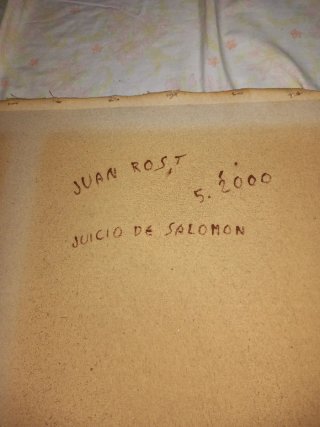 JUAN ROST
5.2000
JUICIO DE SALOMON